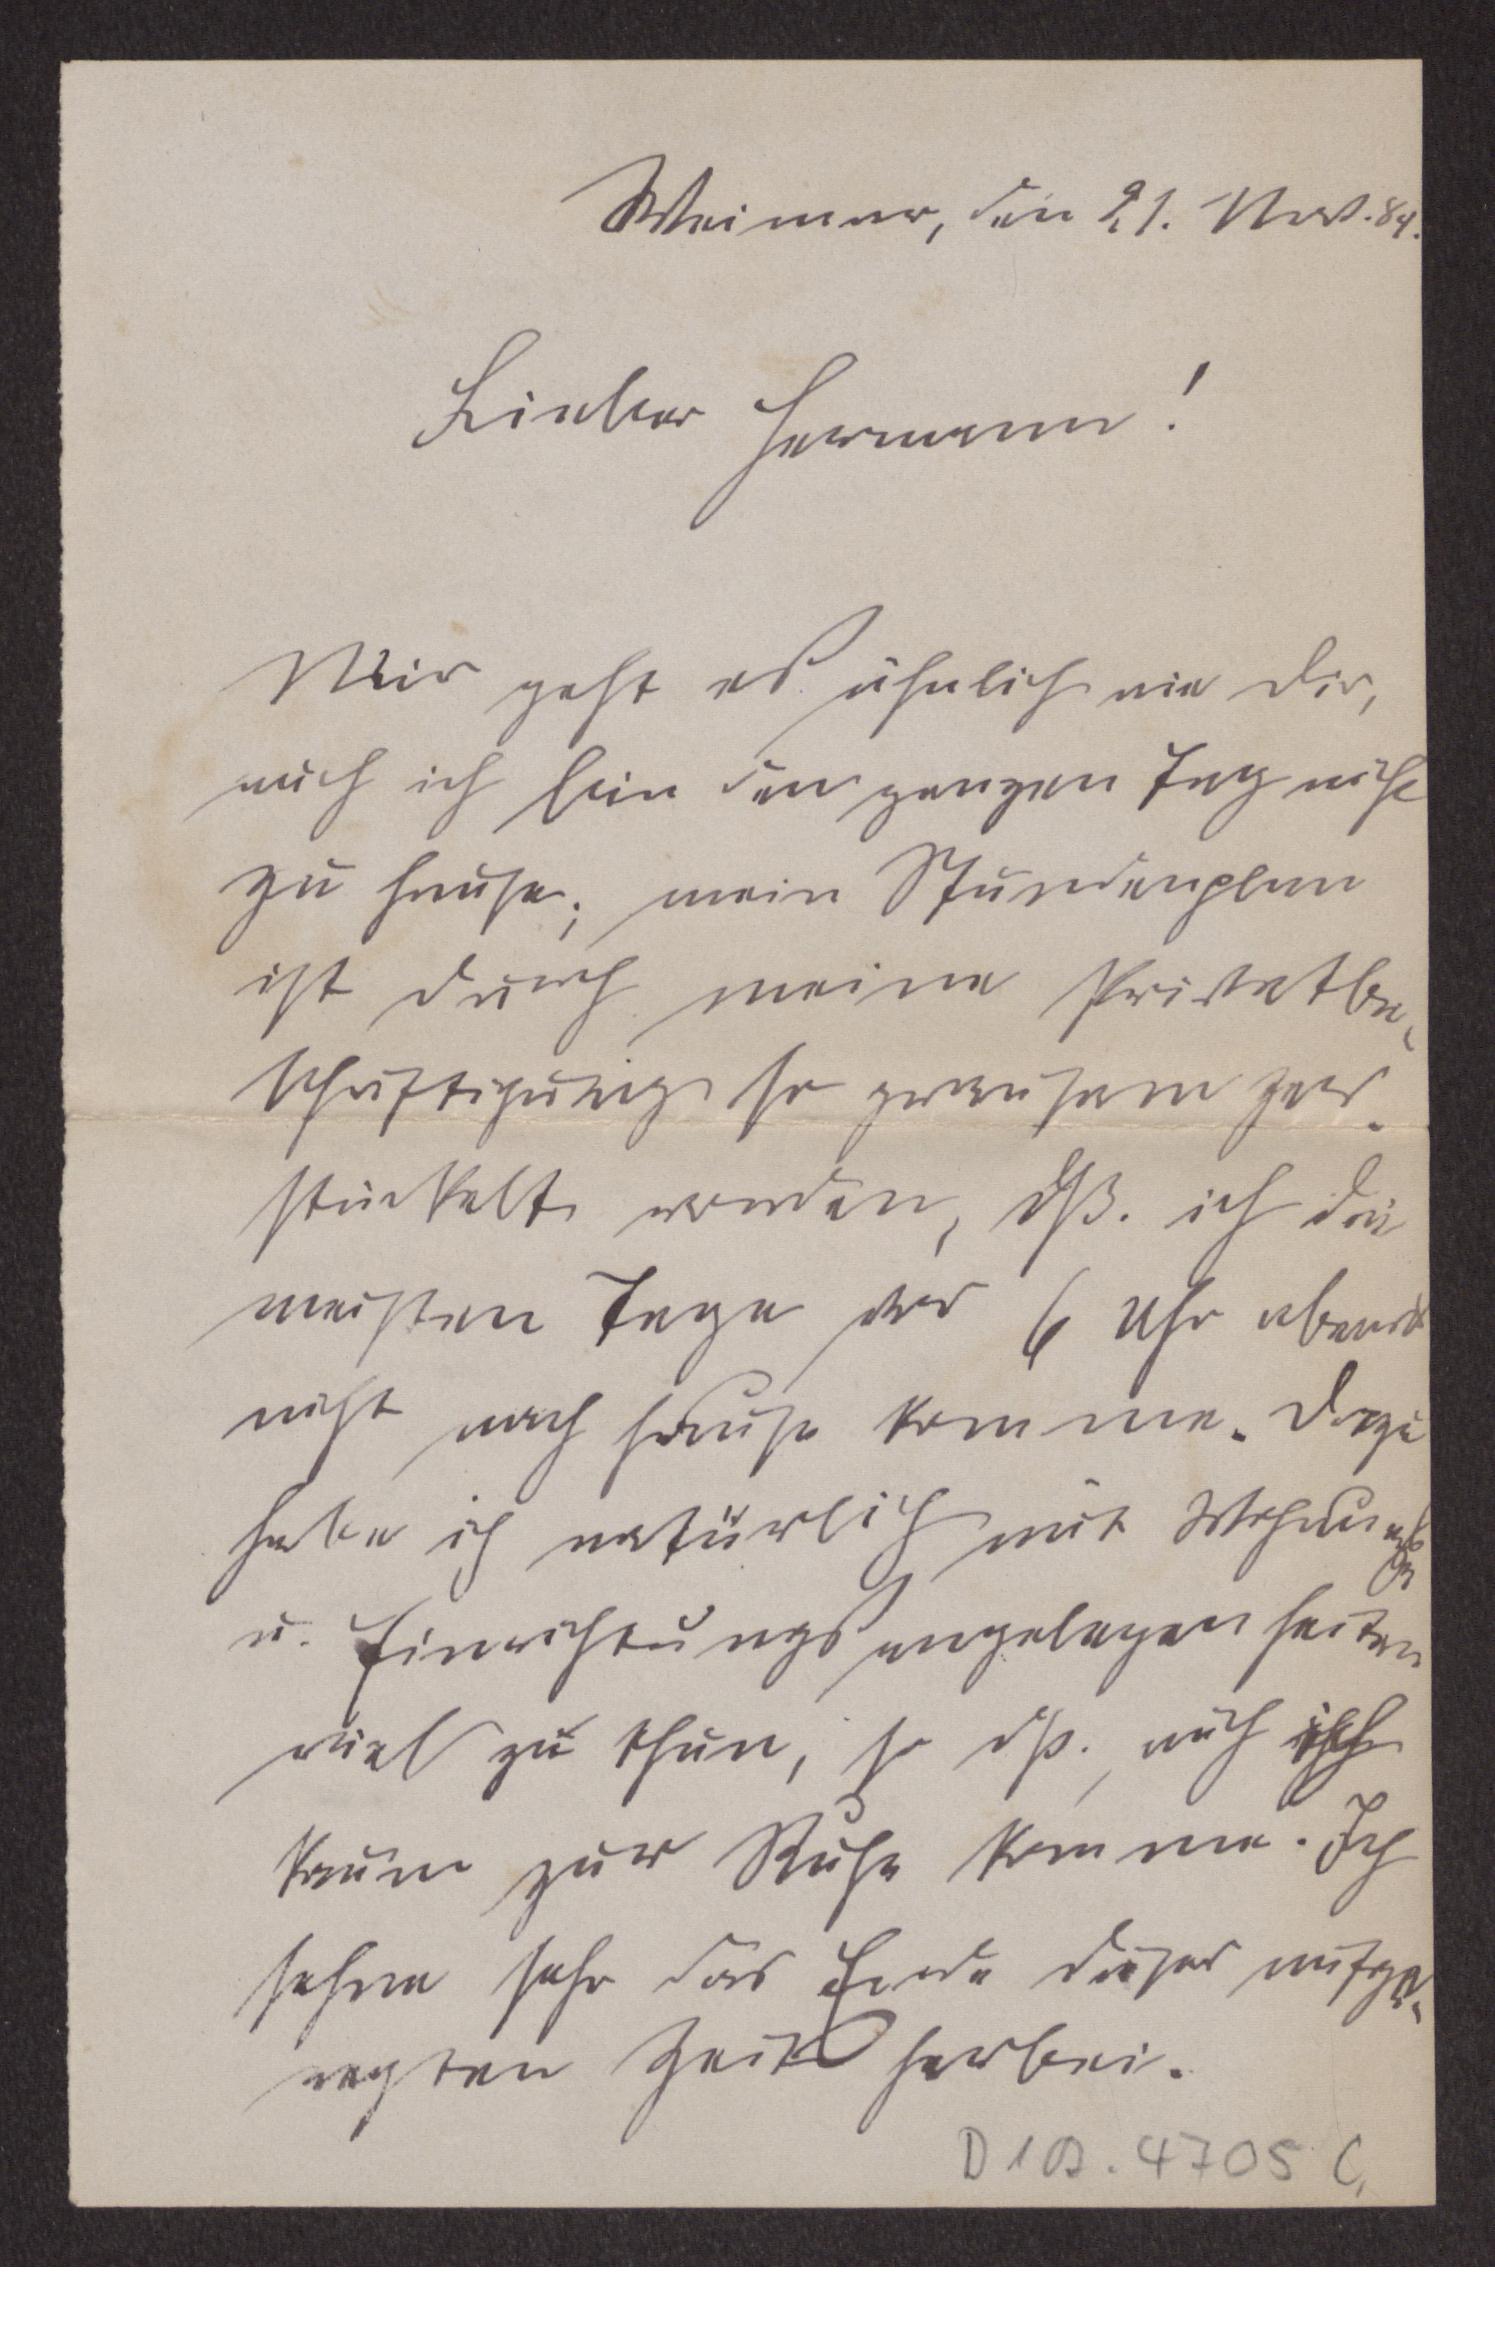 Weimar, den 21. Nov. 84.
Lieber Hermann!
Mir geht es ähnlich wie Dir,
auch ich bin den ganzen Tag nicht
zu Hause; mein Stundenplan
ist durch meine Privatbe-
schäftigung so grausam zer-
stückelt worden, dß. ich die
meisten Tage vor 6 Uhr abends
nicht nach Hause komme. Dazu
habe ich natürlich mit Wohnungs
u. Einrichtungsangelegenheiten
viel zu thun, so dß. auch ich
kaum zur Ruhe komme. Ich
sehne sehr das Ende dieser aufge-
regten Zeit herbei.
D 19. 4705 C,